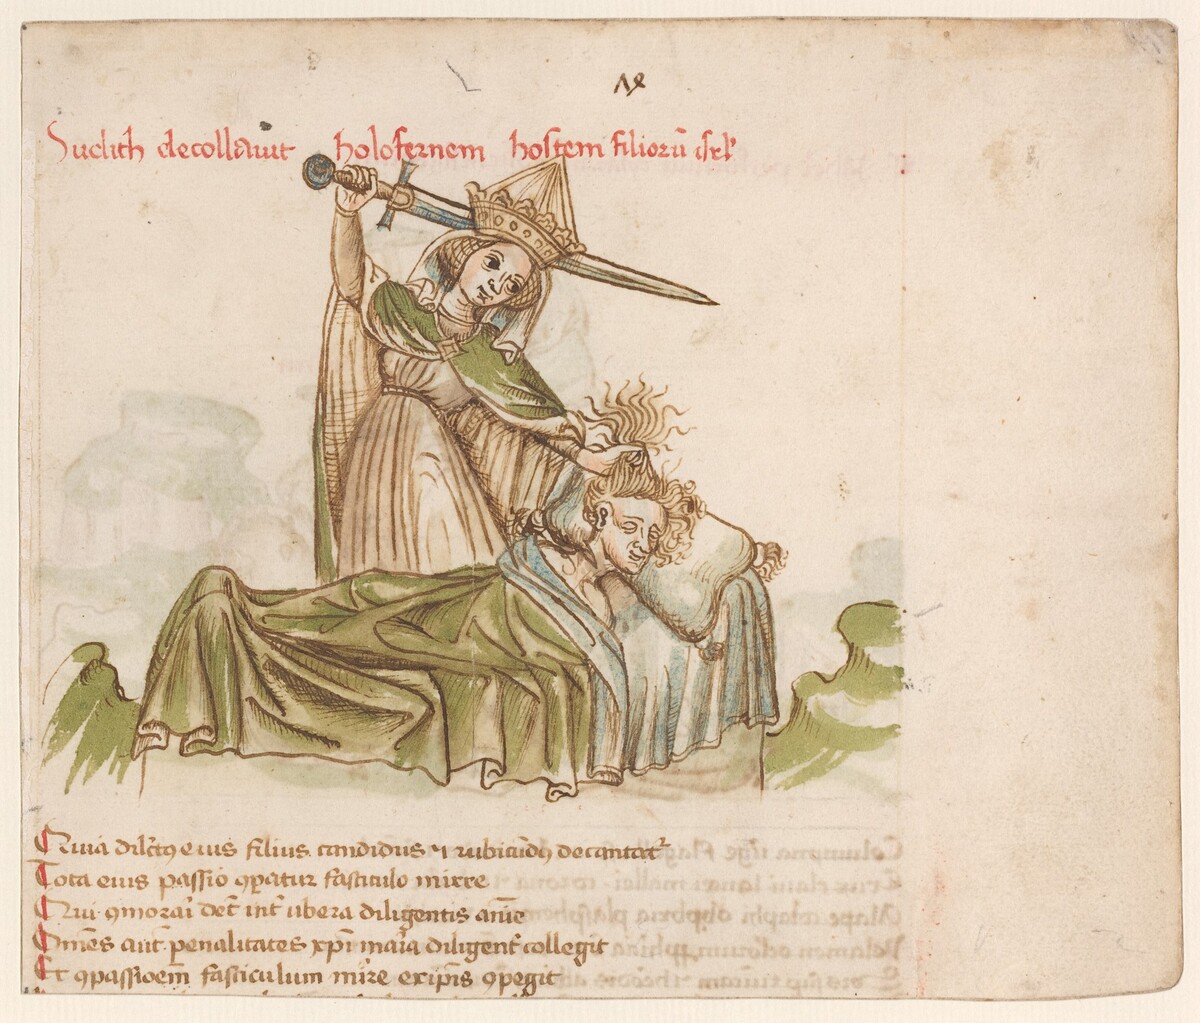 Judith decollavit holofernem hostem filiorū isrl'
Quia dilctꝰ eius filius candidus ⁊ rubicūdꝰ decantatᷣ
Tota eius passio ꝯꝑatur fasciculo mirre
Qui ꝯmorai det int ubera diligentis aīe
Om̄es aut̄ penalitates xp̄i maīa diligent̄ collegit
Et ꝯpassioem̄ fasciculum mirre ex ip̄is ꝯpegit